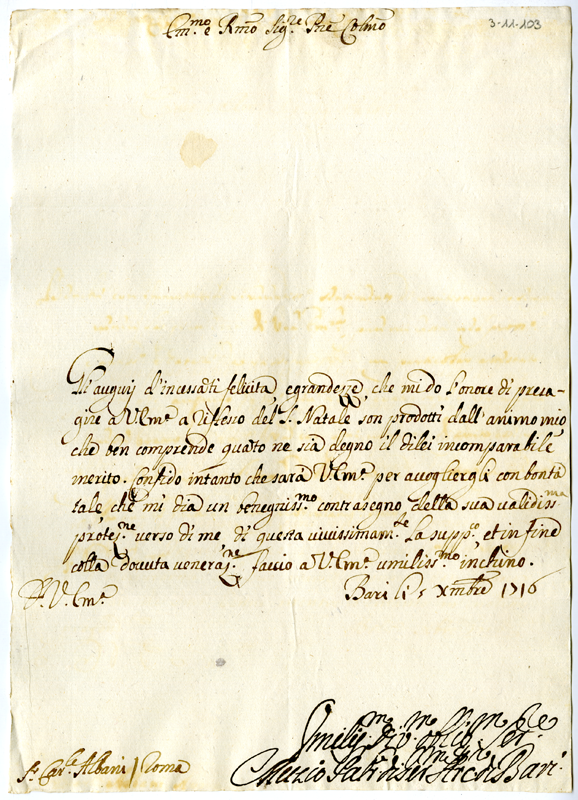 3-11-103
Em.mo e Rmo Sig.re Pne Colmo
Gl'augurij d'incessati felicita, e grandezze che mi do l'onore di presa-
gire a V.Em.a a riflesso del S. Natale son prodotti dall'animo mio
che ben comprende quato ne sia degno il di lei incomparabile
merito. Confido intanto che sarà V.Em.a per accogliergli con bontà
tale che mi dia un benegniss.mo contrasegno della sua validiss.ma
protez.ne verso di me, di questa vivissimam.te La supp.co, et in fine
colla dovuta veneraz.ne faccio a V.Em.a umiliss.mo inchino.
D. V. Em.a
Bari li 5 Xmbre 1716
S.r Car.le Albani / Roma
Arciv. di Bari.